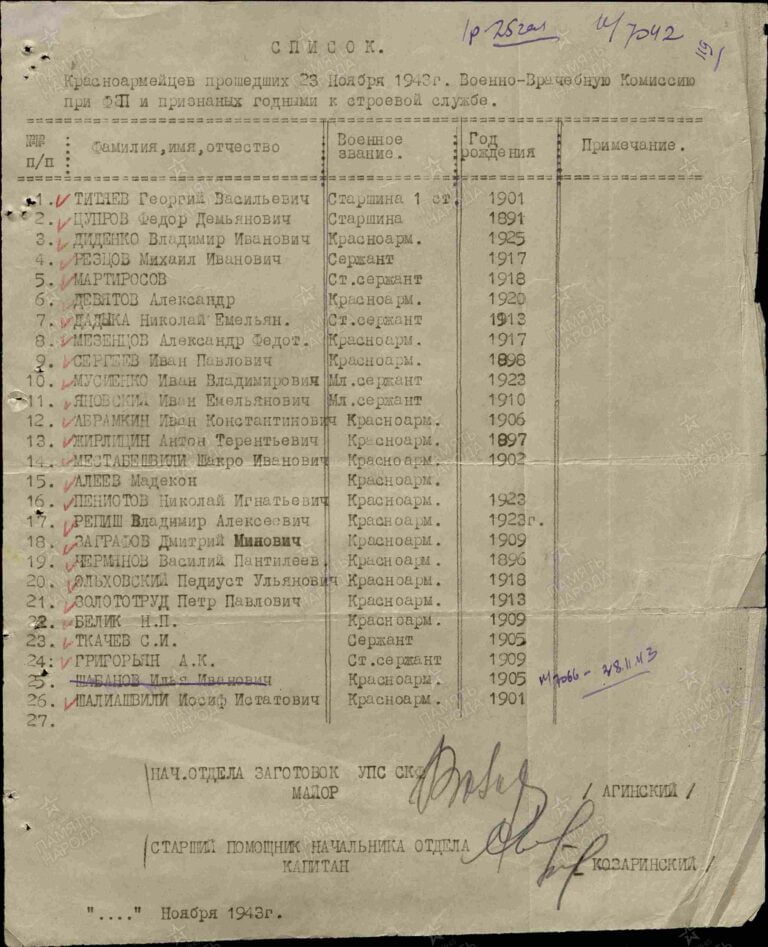 1р 25гал и/7042
119
СПИСОК.
Красноармейцев прошедших 23 Ноября 1943г. Военно-Врачебную Комиссию
при ФЗП и признаных годными к строевой службе.
№№ п/п Фамилия,имя,отчество Военное звание. Год рождения Примечание.
1. ТИТЯЕВ Георгий Васильевич Старшина 1 ст. 1901
2. ЦУПРОВ Федор Демьянович Старшина 1891
3. ДИДЕНКО Владимир Иванович Красноарм. 1925
4. РЕЗЦОВ Михаил Иванович Сержант 1917
5. МАРТИРОСОВ Ст.сержант 1918
6. ДЕВЯТОВ Александр Красноарм. 1920
7. ДАДЫКА Николай Емельян. Ст.сержант 1913
8. МЕЗЕНЦОВ Александр Федот. Красноарм. 1917
9. СЕРГЕЕВ Иван Павлович Красноарм. 1898
10. МУСИЕНКО Иван Владимирович Мл.сержант 1923
11. ЯНОВСКИЙ Иван Емельянович Мл.сержант 1910
12. АБРАМКИН Иван Константинович Красноарм. 1906
13. ЖИРЛИЦИН Антон Терентьевич Красноарм. 1897
14. МЕСТАБЕШВИЛИ Шакро Иванович Красноарм. 1902
15. АЛЕЕВ Мадекон Красноарм.
16. ПЕНИОТОВ Николай Игнатьевич Красноарм. 1923
17. РЕПИШ Владимир Алексеевич Красноарм. 1923г.
18. ЗАГРАФОВ Дмитрий Минович Красноарм. 1909
19. ЧЕРМЯНОВ Василий Пантилеев. Красноарм. 1896
20. ОЛЬХОВСКИЙ Педиуст Ульянович Красноарм. 1918
21. ЗОЛОТОТРУД Петр Павлович Красноарм. 1913
22. БЕЛИК Н.П. Красноарм. 1909
23. ТКАЧЕВ С.И. Сержант 1905
24: ГРИГОРЬЯН А.К. Ст.сержант 1909
25. ШАБАНОВ Илья Иванович Красноарм. 1905 и/7066- 28.11.43
26. ШАЛИАШВИЛИ Иосиф Истатович Красноарм. 1901
27.
НАЧ.ОТДЕЛА ЗАГОТОВОК УПС СКФ
МАЙОР / АГИНСКИЙ /
СТАРШИЙ ПОМОЩНИК НАЧАЛЬНИКА ОТДЕЛА
КАПИТАН / КОЗАРИНСКИЙ /
"...." Ноября 1943г.